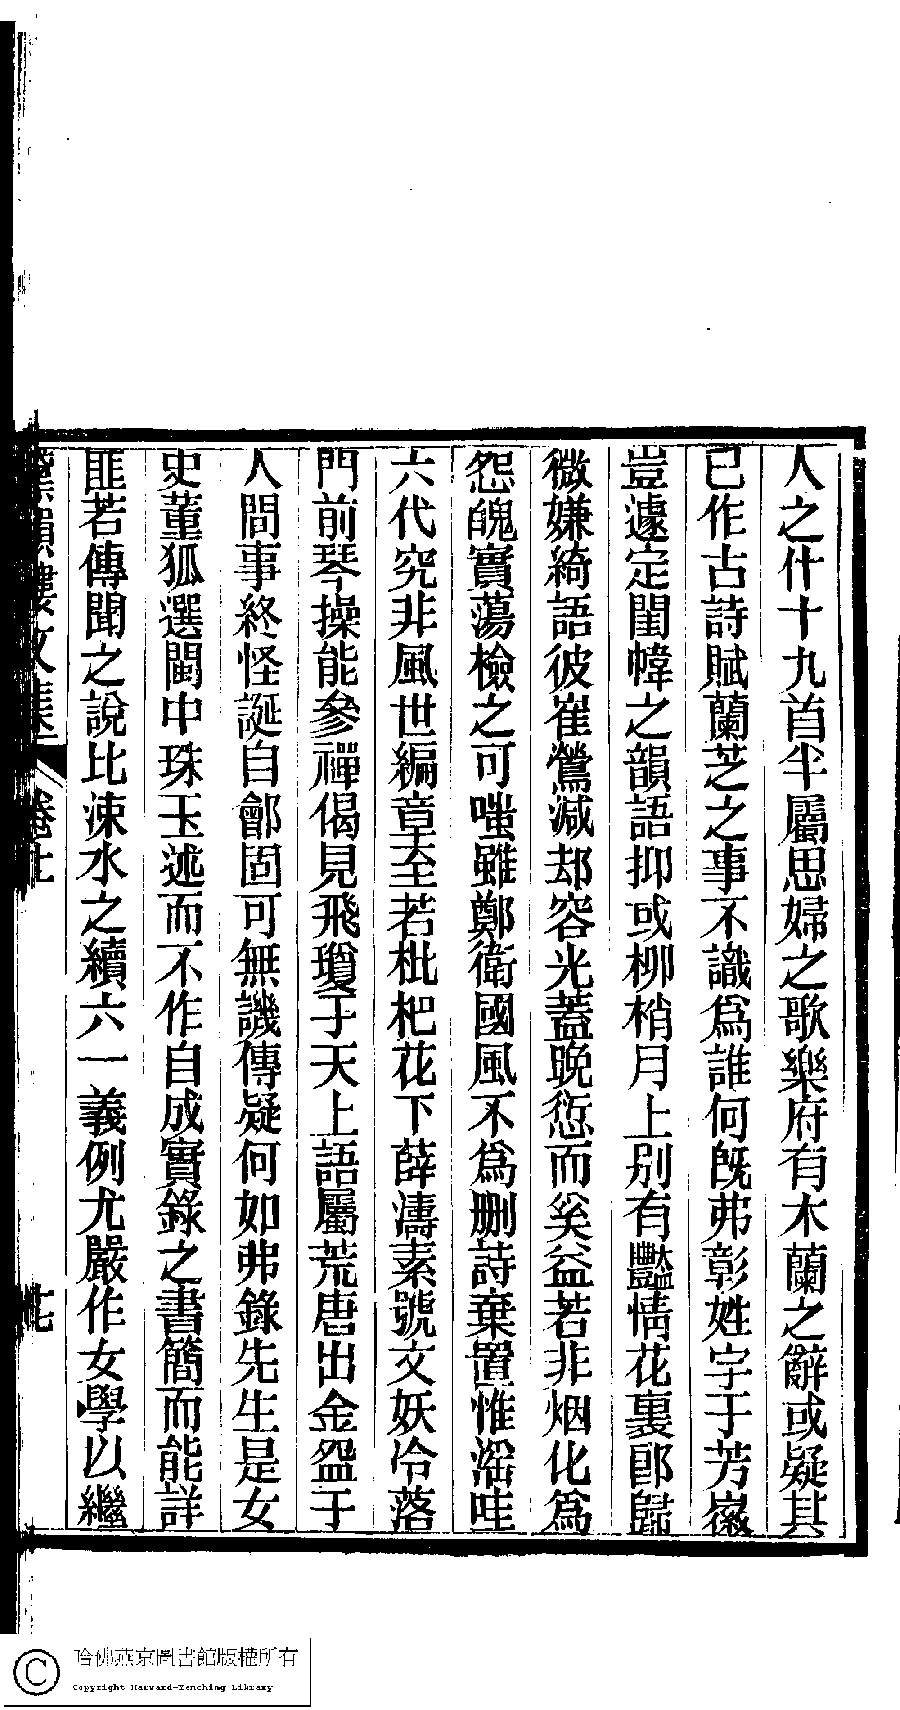 人之什十九首半屬思婦之歌樂府有木蘭之辭或疑其
已作古詩賦蘭芝之事不識爲誰何旣弗彰姓字于芳徽
豈遽定閨幃之韻語抑或柳梢月上别有豔情花裏郎歸
微嫌綺語彼崔鶯减却容光蓋晚愆而奚益若非烟化爲
怨魄實蕩檢之可嗤雖鄭衛國風不爲删詩棄置惟滛哇
六代究非風世編章至若枇杷花下薛濤素號文妖冷落
門前琴操能參禪偈見飛瓊于天上語屬荒唐出金盌于
人間事終怪誕自鄶固可無譏傳疑何如弗錄先生是女
史董狐選閨中珠玉述而不作自成實錄之書簡而能詳
匪若傳聞之說比涑水之續六一義例尤嚴作女學以繼
韻樓文集 卷上
哈佛燕京圖書館版權所有
Copyright Harvard-Yenching Library